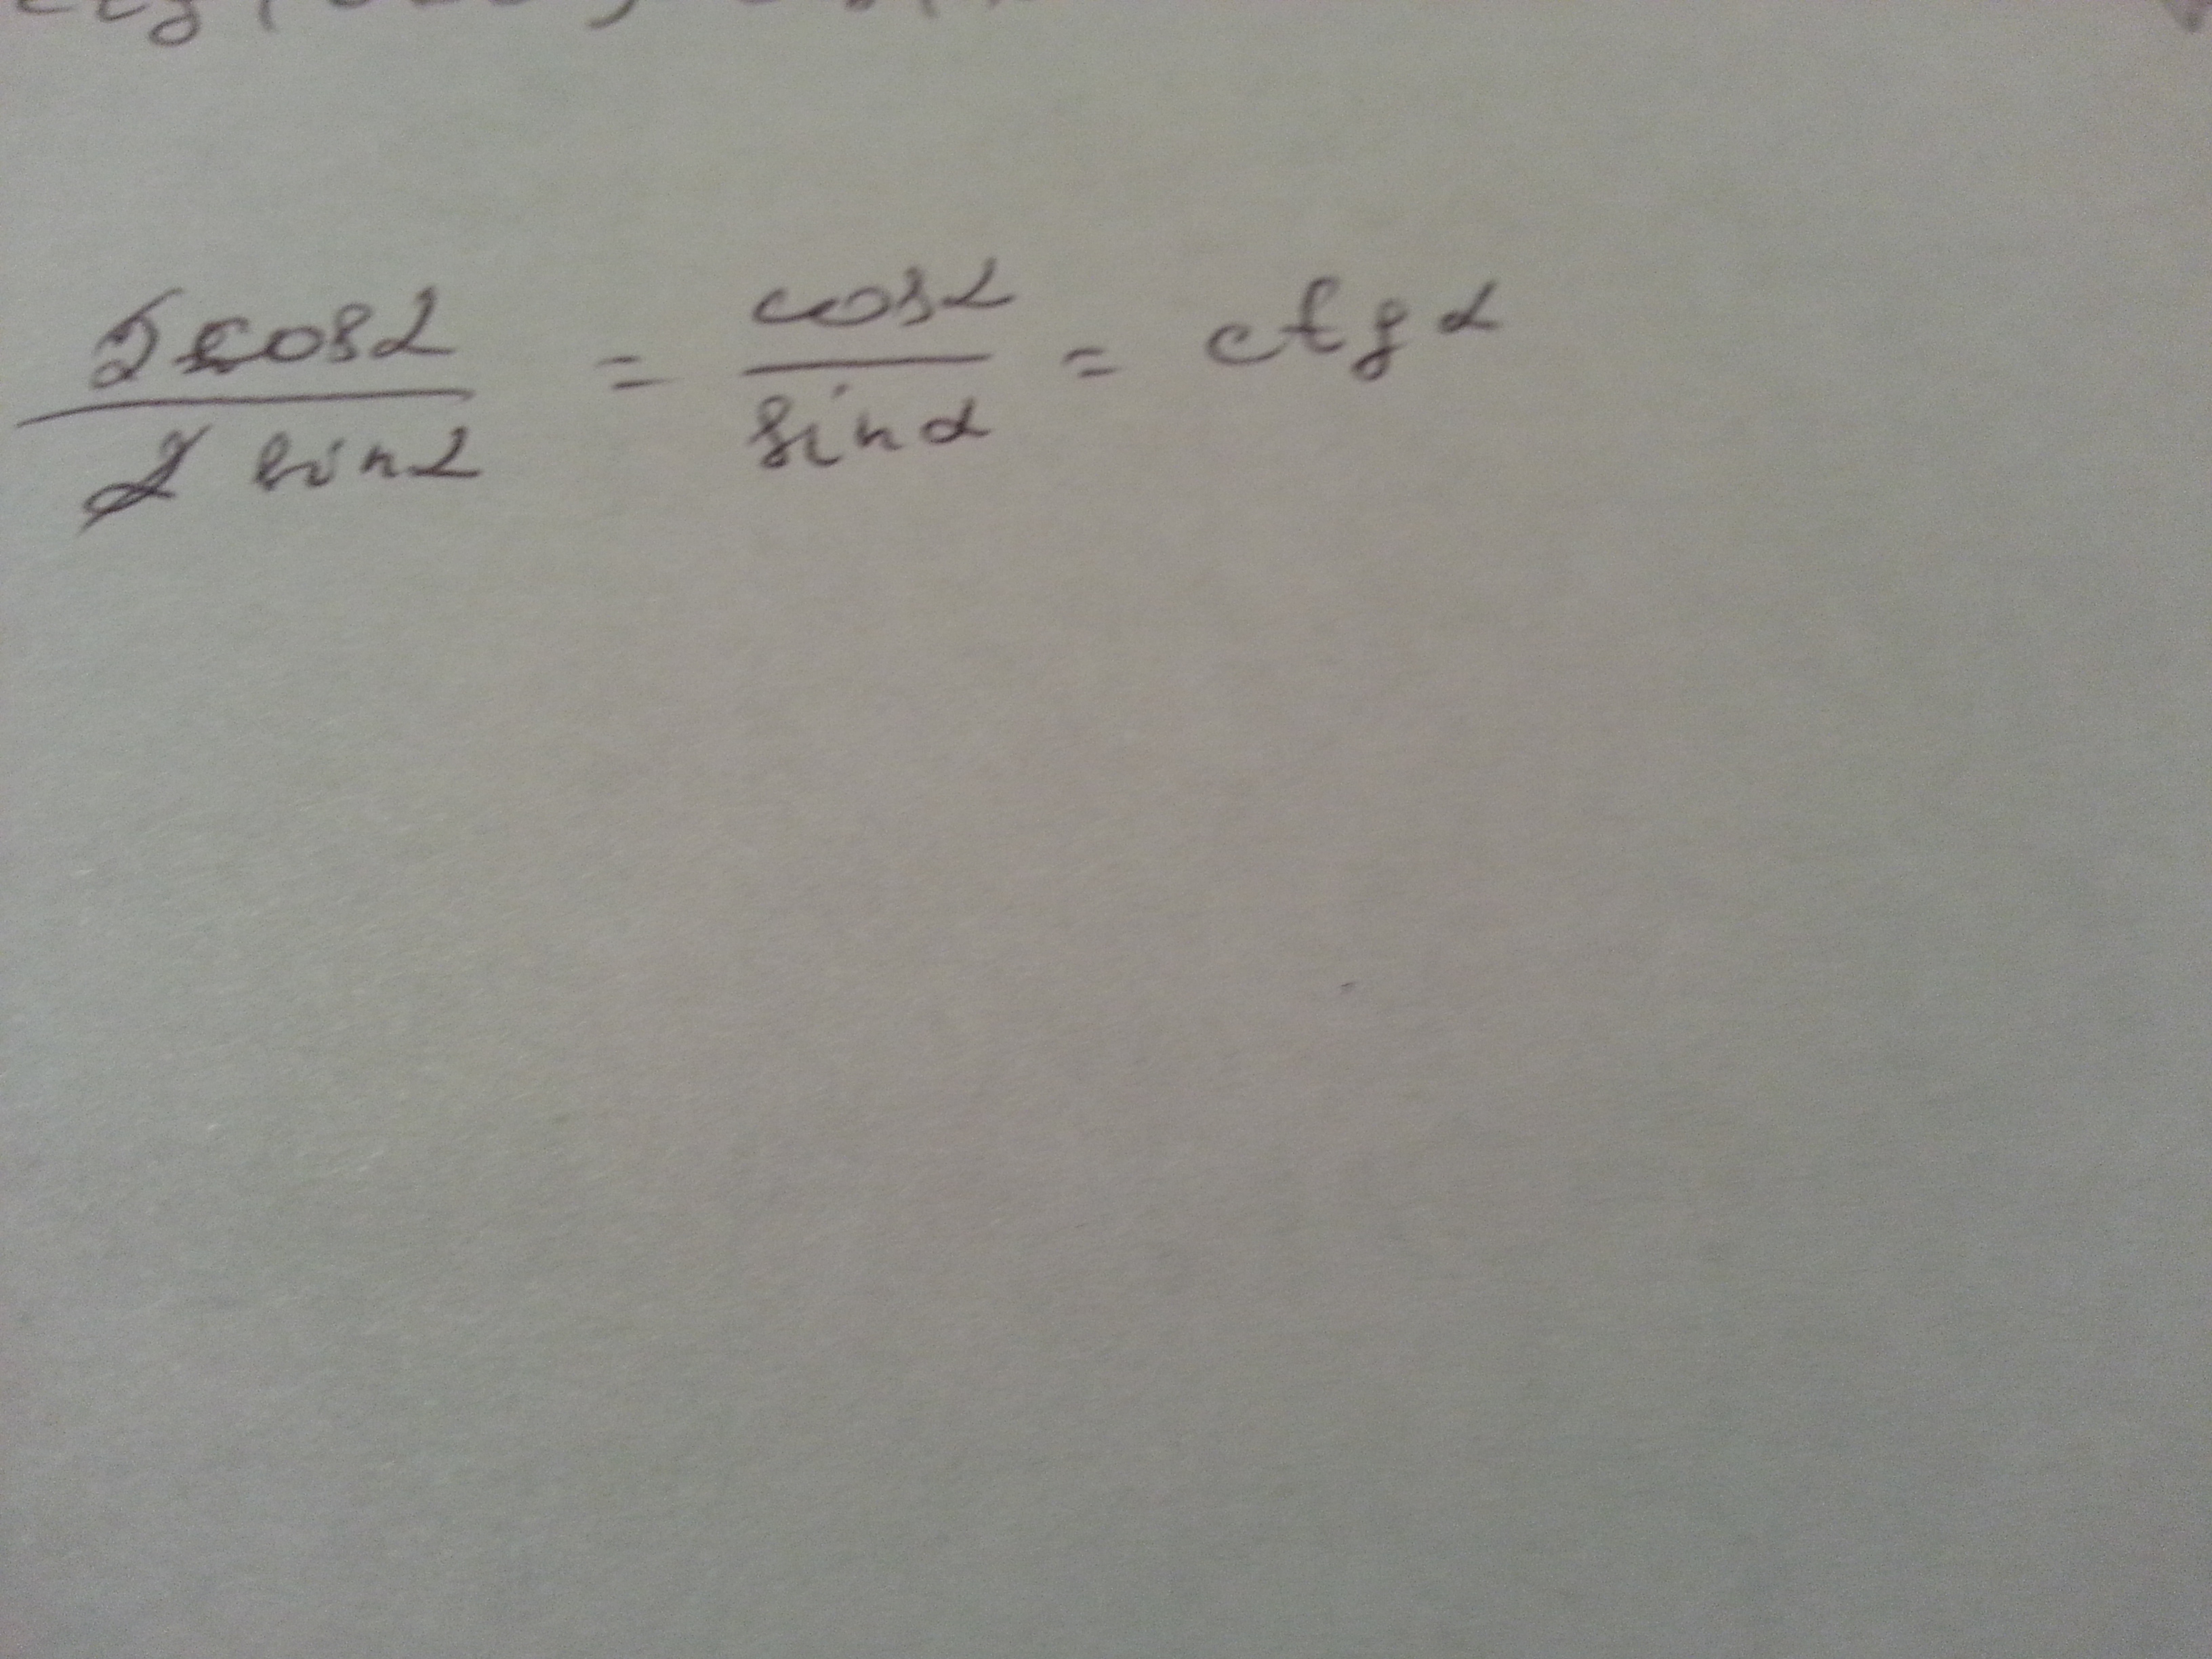 ctg (
2cosα / 2 sinα = cosα / sinα = ctg α